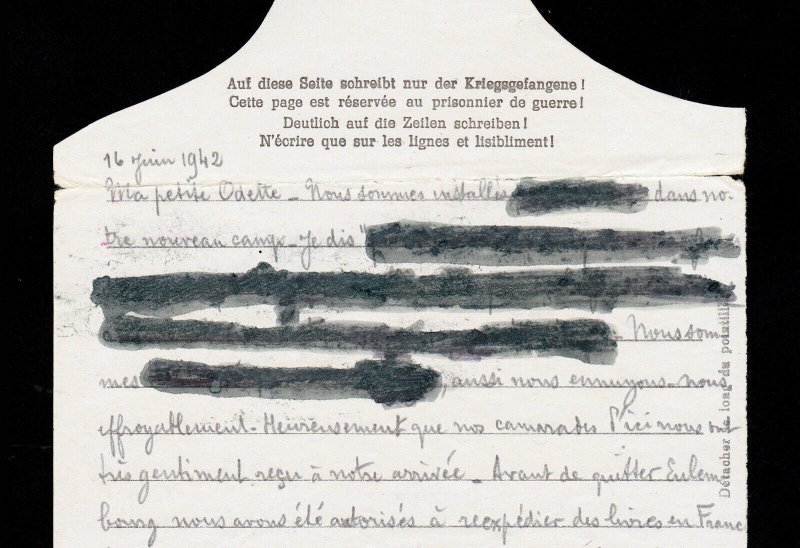 Auf diese Seite schreibt nur der Kriegsgefangene!
Cette page est réservée au prisonnier de guerre!
Deutlich auf die Zeilen schreiben!
N'écrire que sur les lignes et lisibliment!
16 Juin 1942
Ma petite Odette _ Nous sommes installés dans no-
tre nouveau camp _ Je dis "
Nous som
mes aussi nous ennuyons-nous
effroyablement. Heureusement que nos camarades d'ici nous ont
très gentiment reçu à notre arrivée _ Avant de quitter Eulem
bourg nous avons été autorisés à reexpédier des livres en Franc
Détacher le long du pointillé